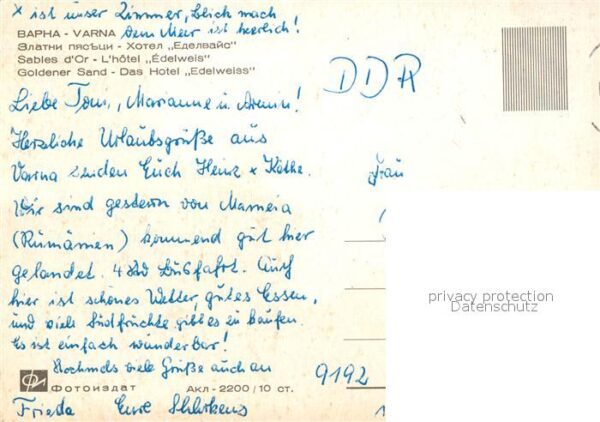 x ist unser Zimmer, Blick nach
dem Meer ist herrlich!
ВАРНА - VARNA
Златни пясъци - Хотел „Еделвайс"
Sables d'Or - L'hôtel „Edelweis"
Goldener Sand - Das Hotel „Edelweiss"
DDR
Liebe Toni, Marianne u. Armin!
Herzliche Urlaubsgrüße aus
Varna senden Euch Heinz + Käthe.
Frau
Wir sind gestern von Mamaia
(Rumänien) kommend gut hier
gelandet. 4 Std Busfahrt. Auch
hier ist schönes Wetter, gutes Essen,
und viele Südfrüchte gibt es zu kaufen.
Es ist einfach wunderbar!
Nochmals viele Grüße auch an
Frieda Eure
9192
Фотоиздат
Акл - 2200 / 10 ст.
privacy protection
Datenschutz